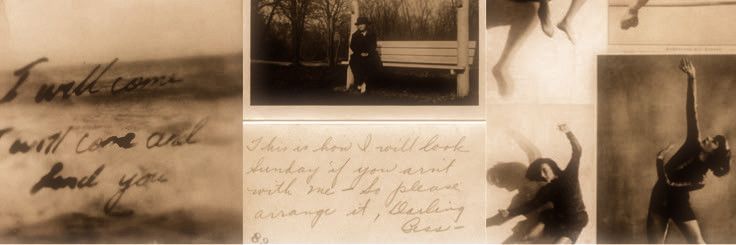 I will come
I will come and
find you
This is how I will look
Sunday if you arn't
with me – So please
arrange it, Darling